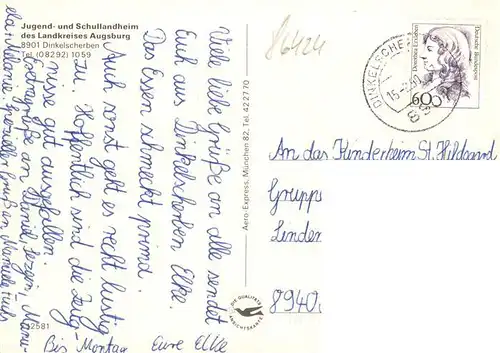 Jugend- und Schullandheim
des Landkreises Augsburg
8901 Dinkelscherben
Tel. (08292) 1059
Viele liebe Grüße an alle sendet
Euch aus Dinkelscherben Elke.
Das Essen schmeckt prima.
Auch sonst geht es recht lustig
zu. Hoffentlich sind die Zeug-
nisse gut ausgefallen.
Extragrüße an Daniel,
Bis Montag Eure Elke
12581
Aero-Express, München 82, Tel. 422770
DIE QUALITÄTS
ANSICHTSKARTE
86424
DINKELSCHE
Dorothea Erxleben
Deutsche Bundespost
60
An das Kinderheim St. Hildegard
Gruppe
Linden
8940